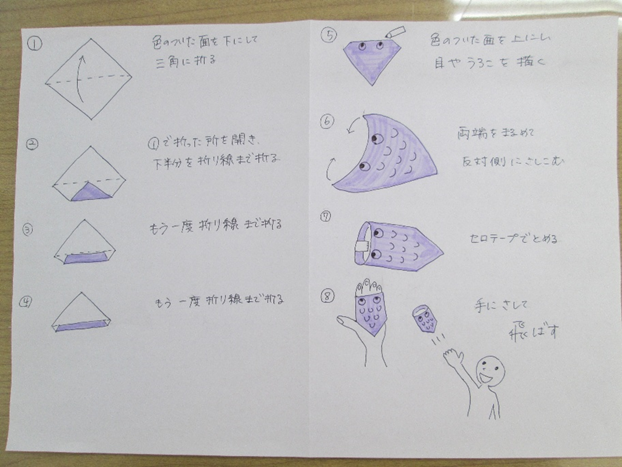 ① 色のついた面を下にして
三角に折る
② ①で折った所を開き、
下半分を折り線まで折る
③ もう一度折り線まで折る
④ もう一度折り線まで折る
⑤ 色のついた面を上にし
目やうろこを描く
⑥ 両端をまるめて
反対側にさしこむ
⑦ セロテープでとめる
⑧ 手にさして
飛ばす